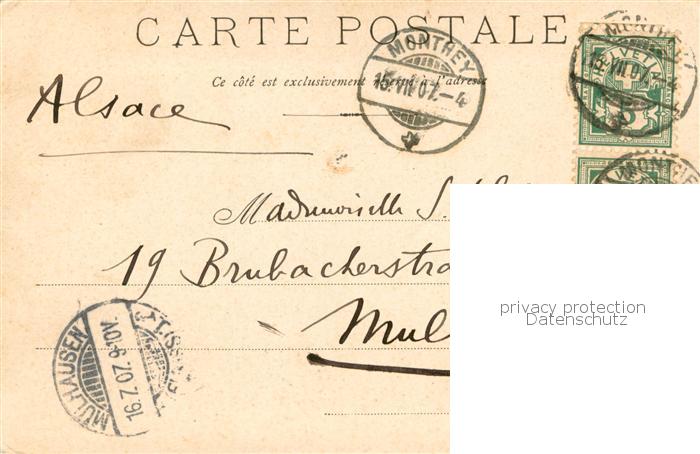 CARTE POSTALE
Ce côté est exclusivement réservé à l'adresse
MONTHEY
15.VII.07.-4
MONTHEY
HELVETIA
Alsace
MONTHE
Mademoiselle S.
19 Brubacherstra
Mul
MÜLHAUSEN
16.7.07.
privacy protection
Datenschutz